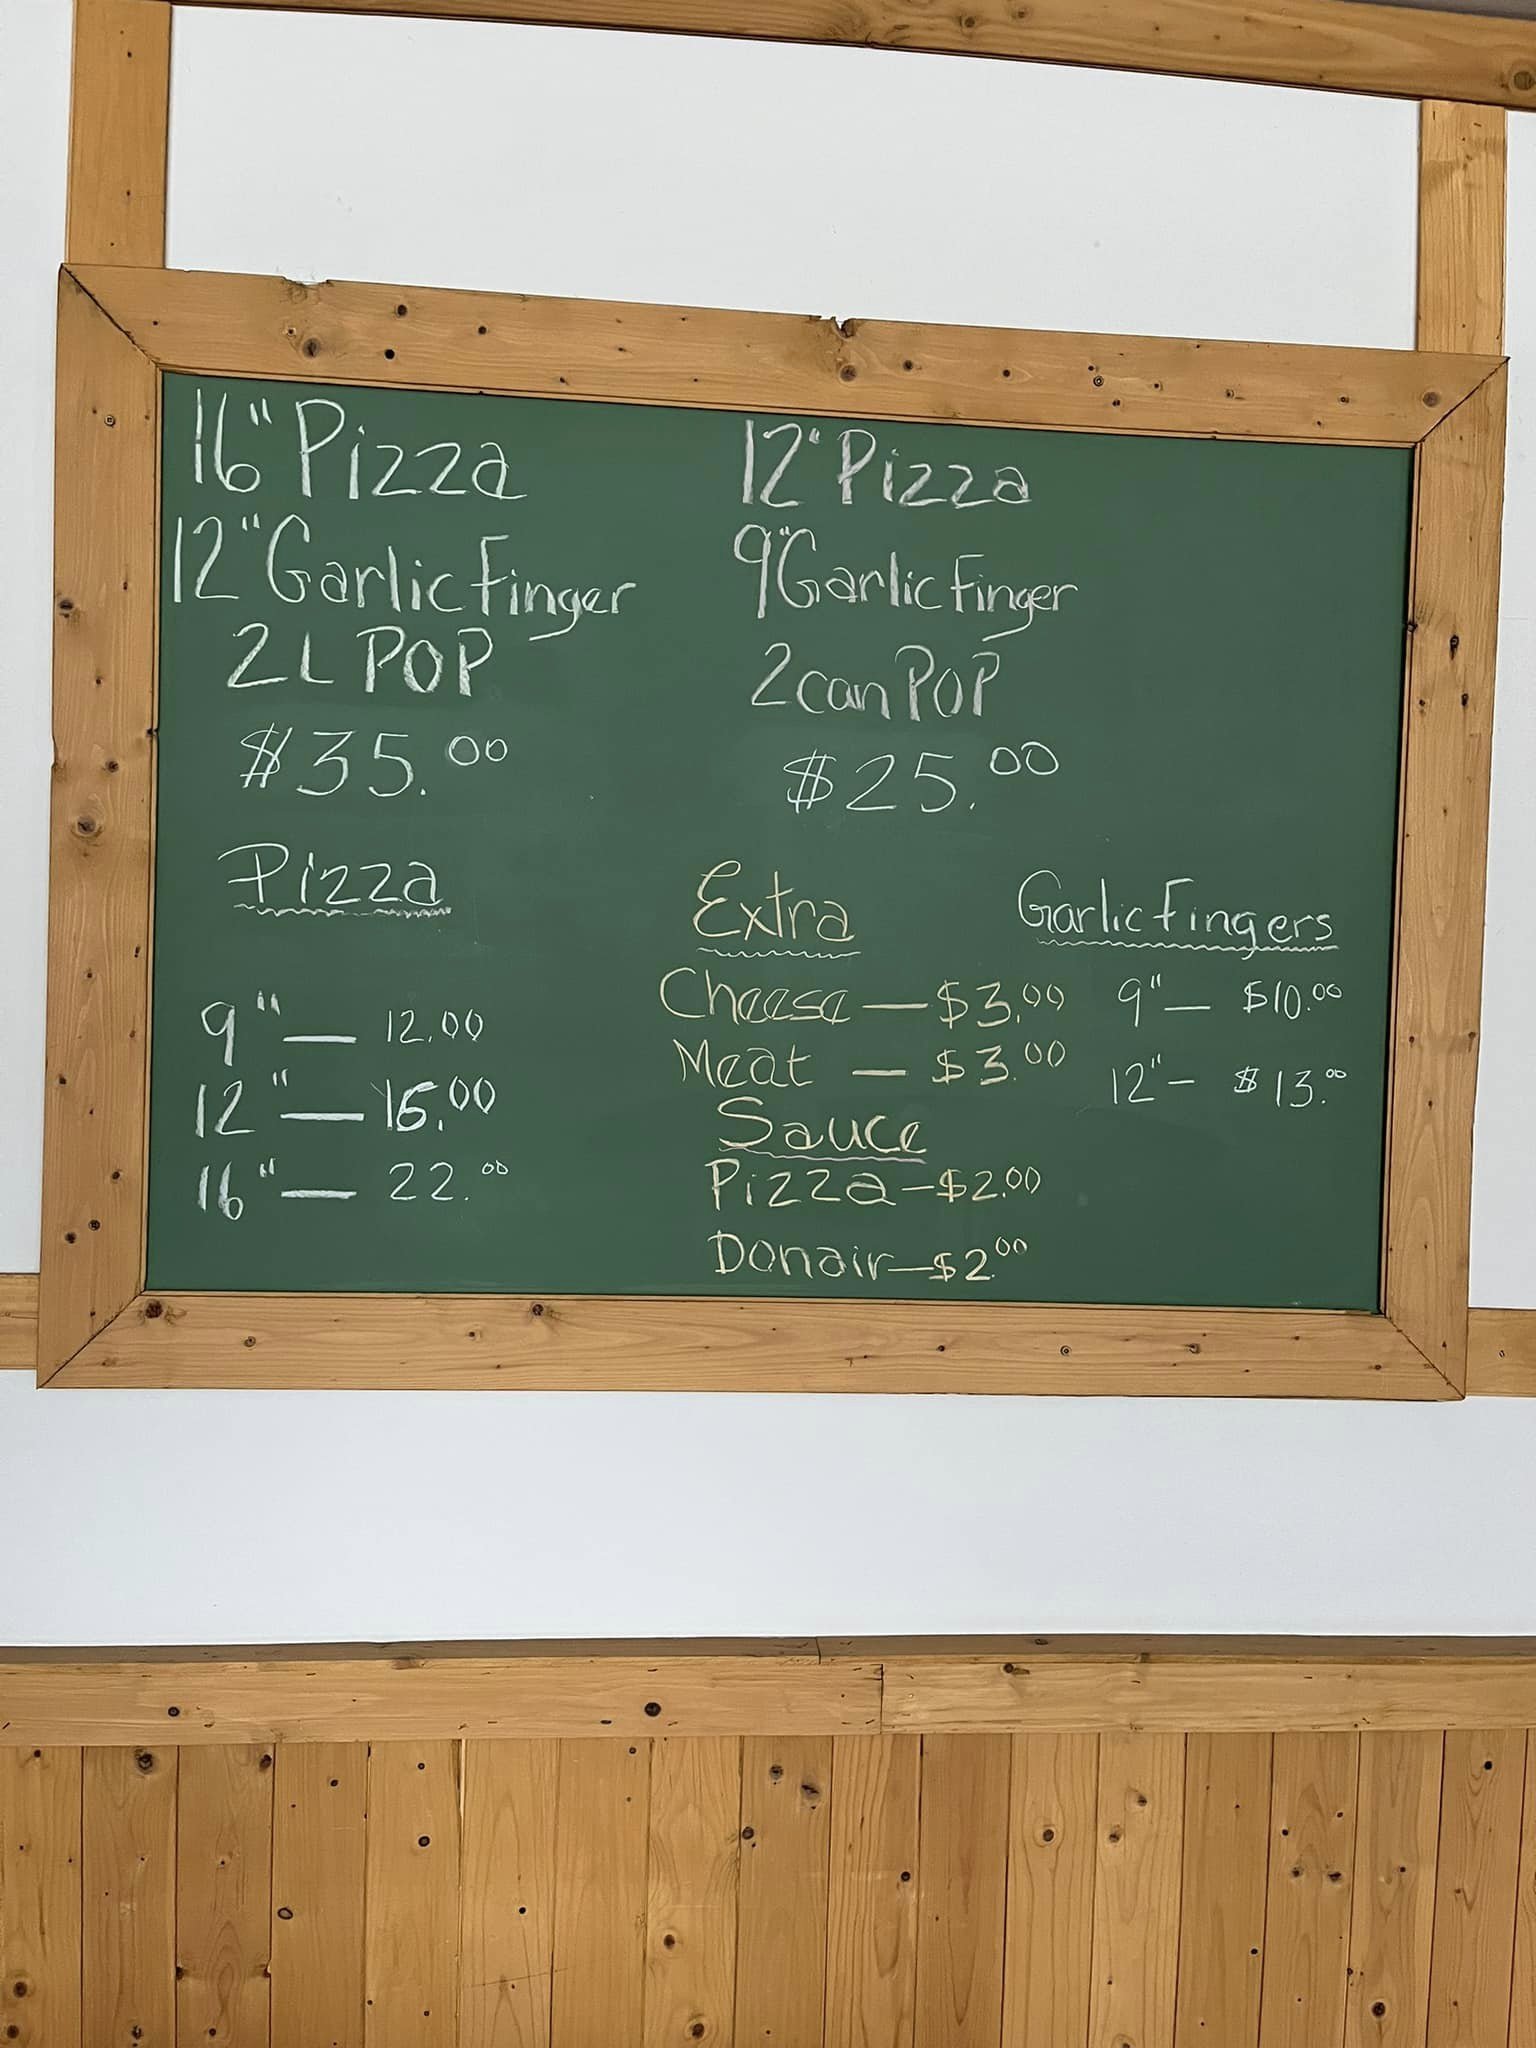 16" Pizza
12" Garlic Finger
2L POP
$35.00
12" Pizza
9" Garlic Finger
2 can POP
$25.00
Pizza
9" — 12.00
12" — 15.00
16" — 22.00
Extra
Cheese — $3.00
Meat — $3.00
Sauce
Pizza — $2.00
Donair — $2.00
Garlic Fingers
9" — $10.00
12" — $13.00